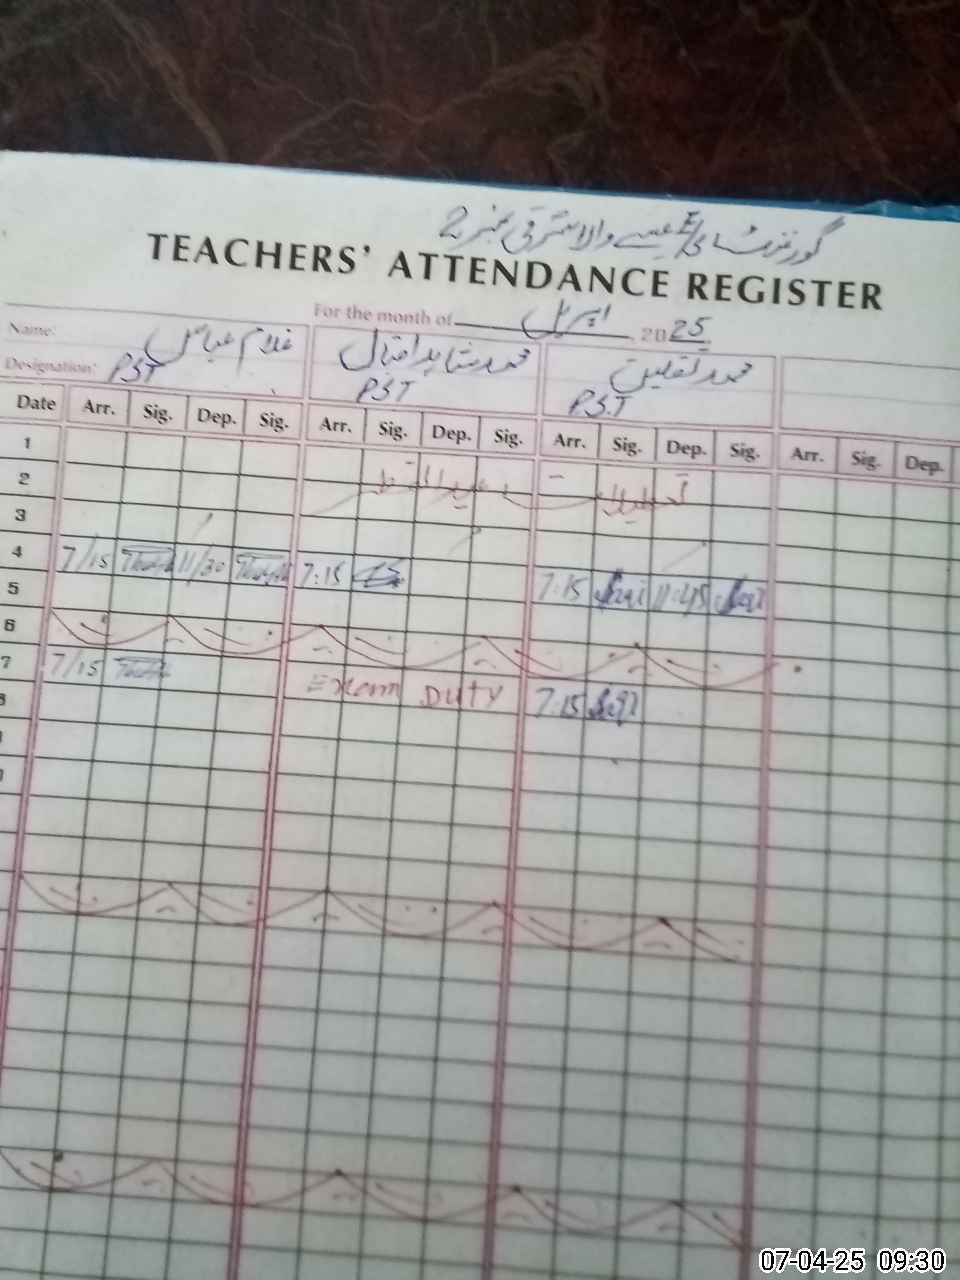 گورنمنٹ والا شرقی نمبر 2
TEACHERS' ATTENDANCE REGISTER
For the month of اپریل 2025
Name: غلام عباس محمد شاہد اقبال محمد ثقلین
Designation: PST PST P.S.T
Date Arr. Sig. Dep. Sig. Arr. Sig. Dep. Sig. Arr. Sig. Dep. Sig. Arr. Sig. Dep.
1
2
3
4 7/15 11/30 7:15 7:15 11:45
5
6
7 7/15 Exam DUTY 7:15
07-04-25 09:30